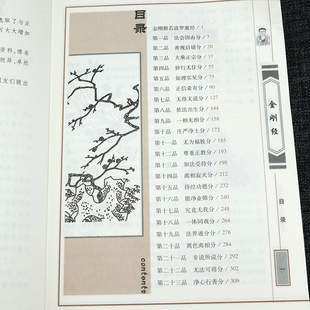 选取了与正
可大大增加
资料，博采
迥异，卓然
友们提出
目录
金刚般若波罗蜜经 / 1
第一品 法会因由分 / 7
第二品 善现启请分 / 20
第三品 大乘正宗分 / 37
第四品 妙行无住分 / 55
第五品 如理实见分 / 75
第六品 正信希有分 / 90
第七品 无得无说分 / 127
第八品 依法出生分 / 144
第九品 一相无相分 / 156
第十品 庄严净土分 / 172
第十一品 无为福胜分 / 185
第十二品 尊重正教分 / 193
第十三品 如法受持分 / 199
第十四品 离相寂灭分 / 212
第十五品 持经功德分 / 232
第十六品 能净业障分 / 240
第十七品 究竟无我分 / 248
第十八品 一体同观分 / 264
第十九品 法界通分分 / 276
第二十品 离色离相分 / 284
第二十一品 非说所说分 / 292
第二十二品 无法可得分 / 302
第二十三品 净心行善分 / 309
contents
金刚经
目录
一